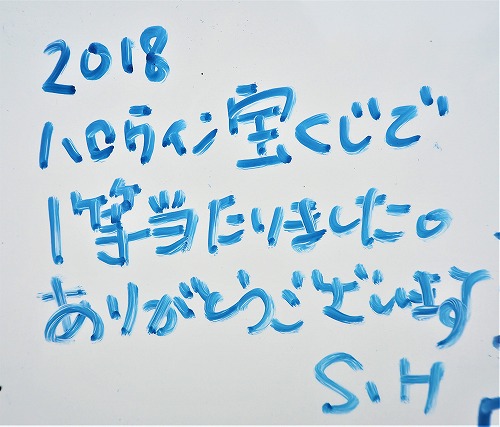 2018
ハロウィン宝くじで
1等当たりました。
ありがとうございます
S.H